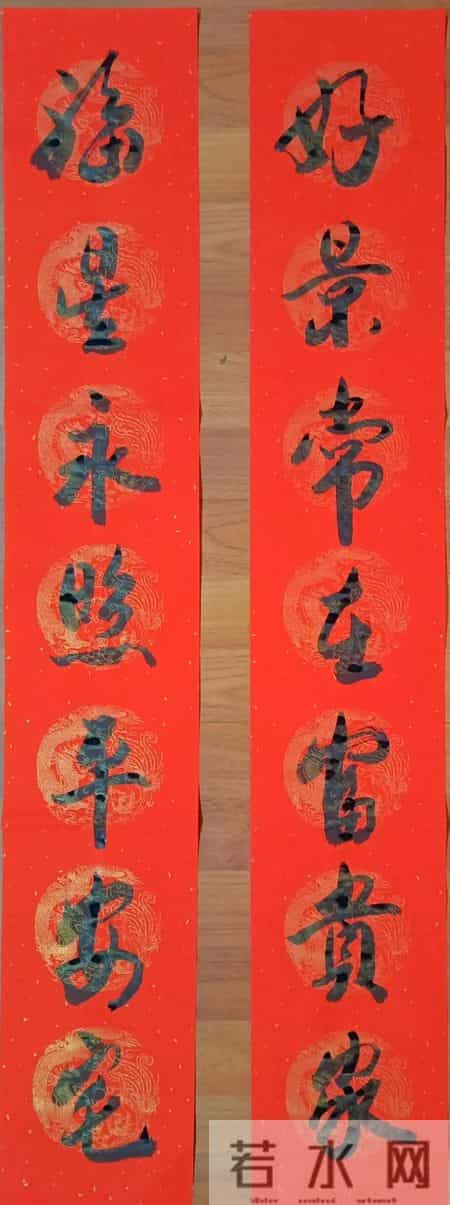 好景常在富貴家
福星永照平安宅
若水网